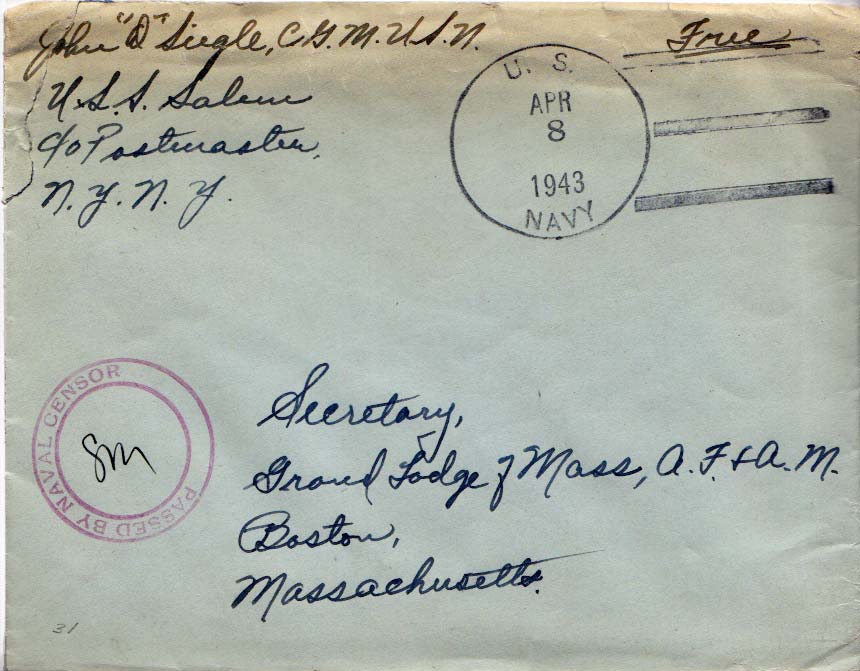 John "D" Siegle, C.G.M. U.S.N.
U.S.S. Salem
c/o Postmaster,
N.Y. N.Y.
Free
U. S.
APR
8
1943
NAVY
PASSED BY NAVAL CENSOR
SM
Secretary,
Grand Lodge of Mass, A.F. & A.M.
Boston,
Massachusetts.
31